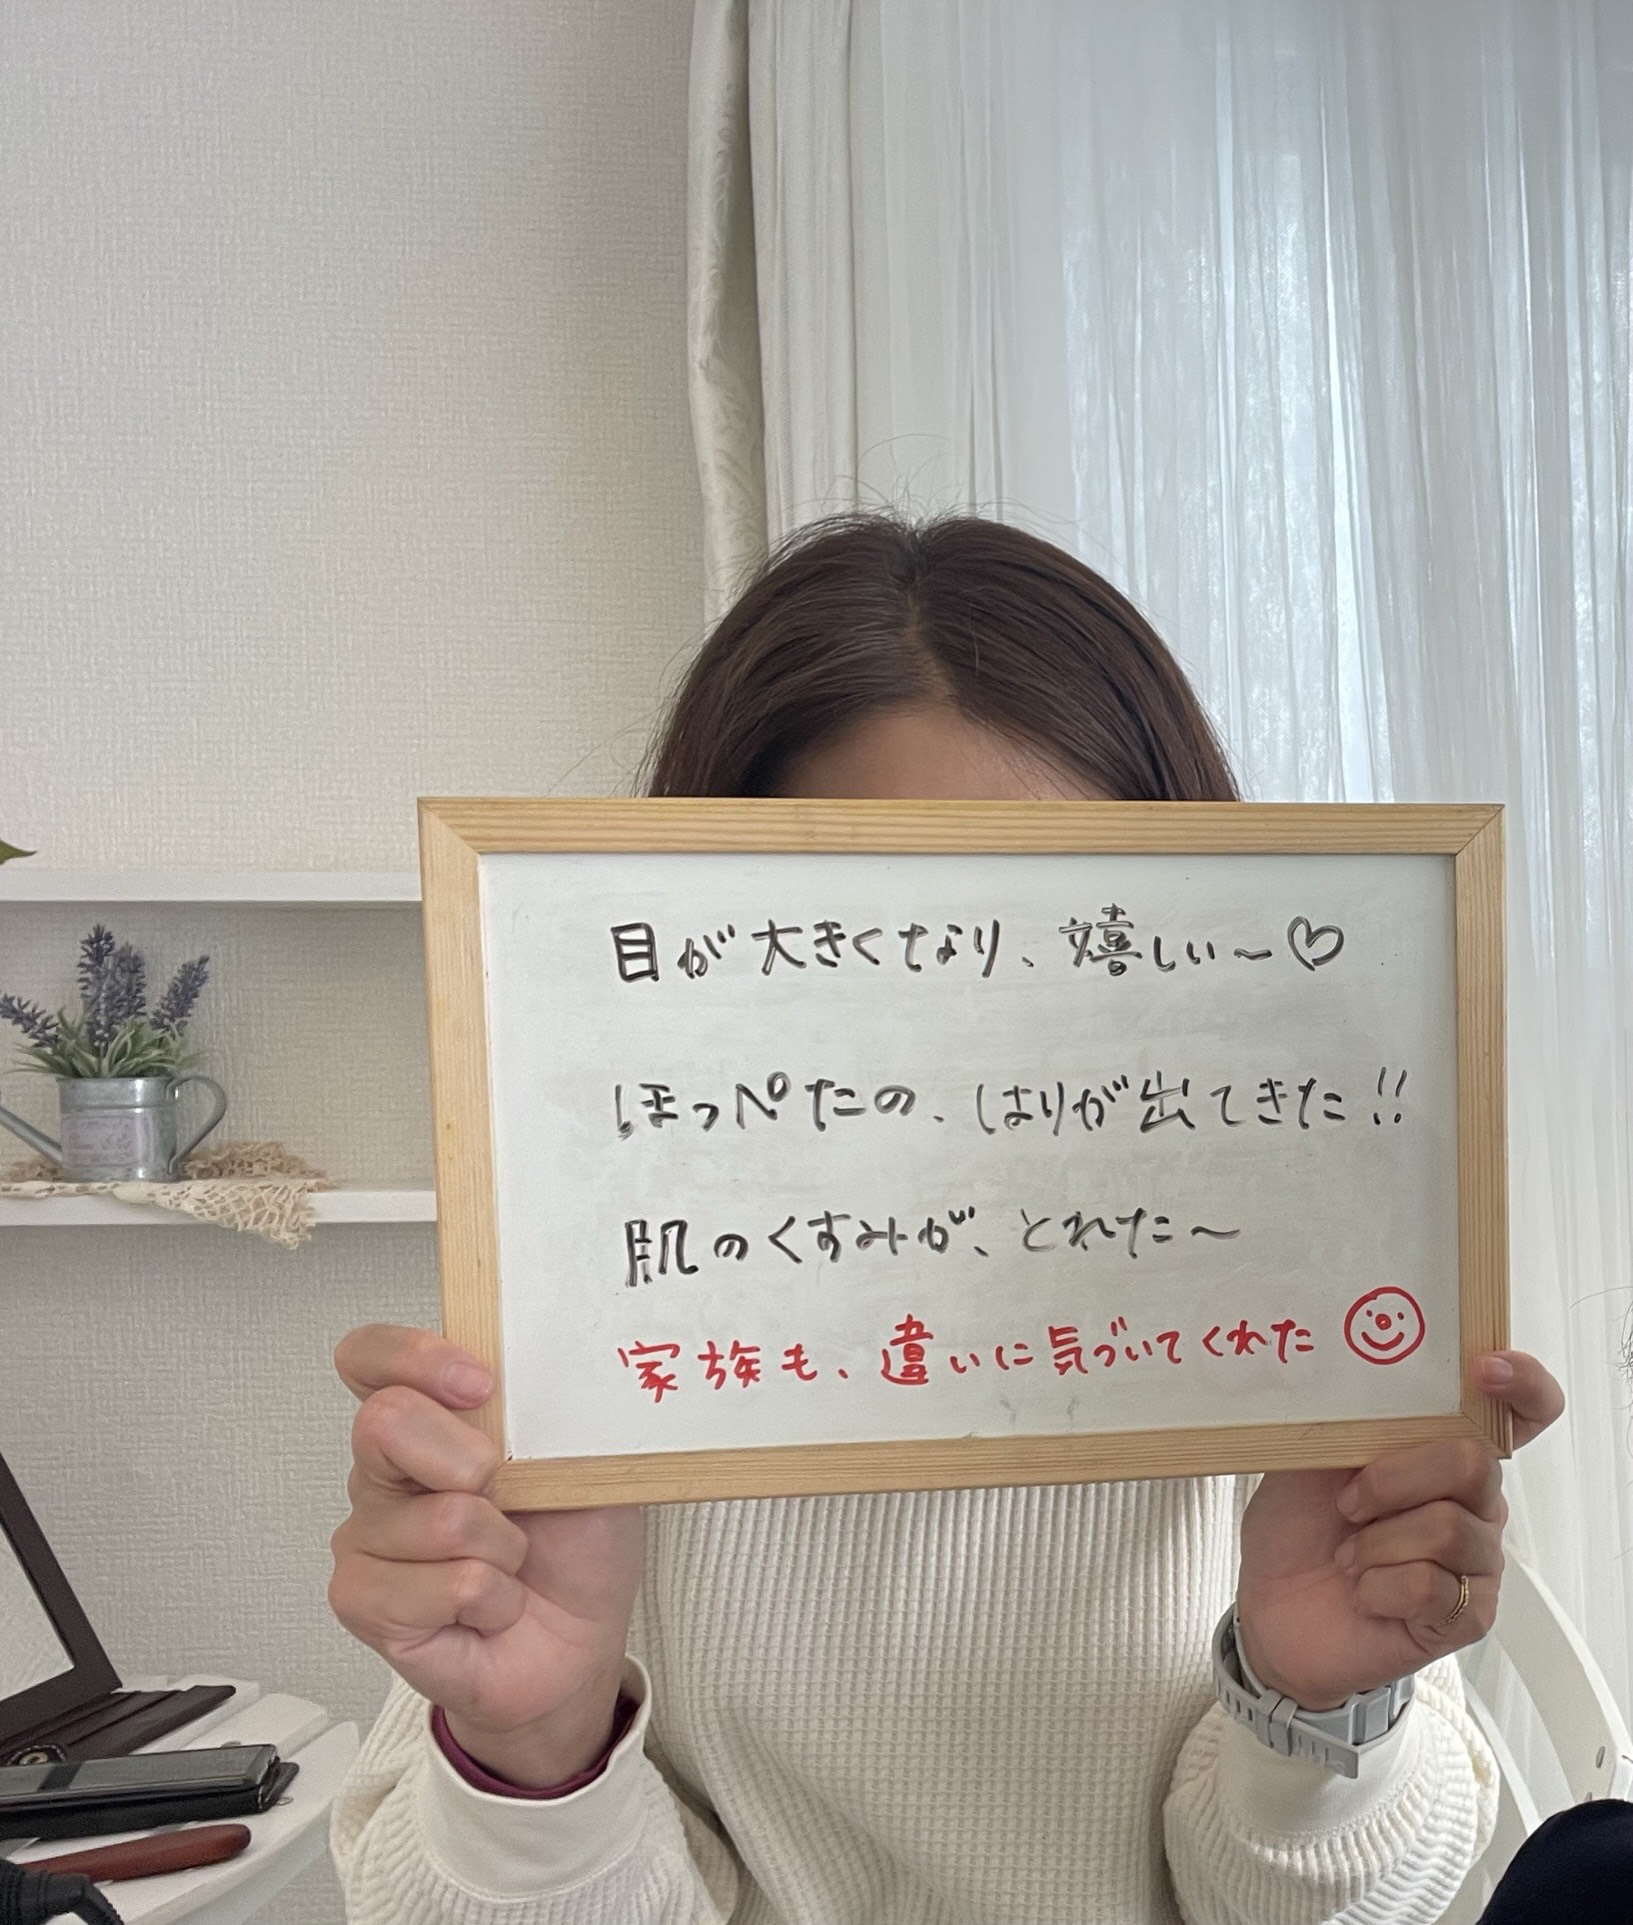 目が大きくなり、嬉しい～♡
ほっぺたの、はりが出てきた!!
肌のくすみが、とれた～
家族も、違いに気づいてくれた